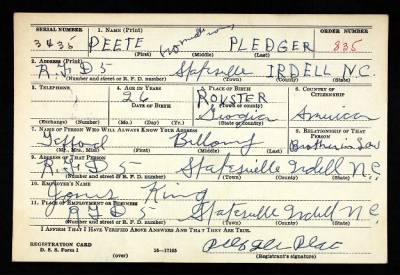 SERIAL NUMBER 1. NAME (Print) ORDER NUMBER
3435 DEETE (no middle name) PLEDGER 835
(First) (Middle) (Last)
2. ADDRESS (Print)
R.F.D 5 Statesville IRDELL N.C.
(Number and street or R. F. D. number) (Town) (County) (State)
3. TELEPHONE 4. AGE IN YEARS 5. PLACE OF BIRTH 6. COUNTRY OF CITIZENSHIP
26 ROYSTER
DATE OF BIRTH (Town or county)
Georgia American
(Exchange) (Number) (Mo.) (Day) (Yr.) (State or country)
7. NAME OF PERSON WHO WILL ALWAYS KNOW YOUR ADDRESS 8. RELATIONSHIP OF THAT PERSON
Brother in Law
(Mr., Mrs., Miss) (First) (Middle) (Last)
9. ADDRESS OF THAT PERSON
R.F.D 5 Statesville Iredell N.C.
(Number and street or R. F. D. number) (Town) (County) (State)
10. EMPLOYER'S NAME
King
11. PLACE OF EMPLOYMENT OR BUSINESS
R.F.D 5 Statesville Iredell N.C.
(Number and street or R. F. D. number) (Town) (County) (State)
I AFFIRM THAT I HAVE VERIFIED ABOVE ANSWERS AND THAT THEY ARE TRUE.
REGISTRATION CARD
D. S. S. Form 1 16—17105
(over) (Registrant's signature)